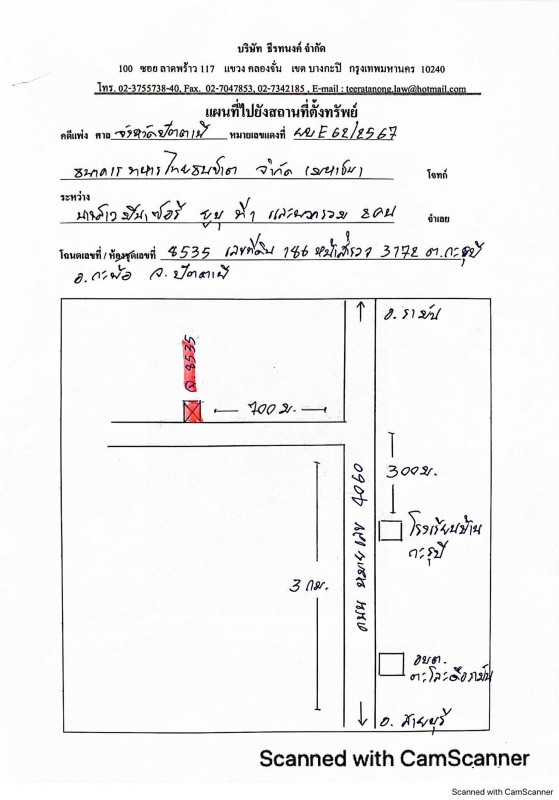 บริษัท ธีรทนงค์ จำกัด
100 ซอย ลาดพร้าว 117 แขวง คลองจั่น เขต บางกะปิ กรุงเทพมหานคร 10240
โทร. 02-3755738-40, Fax. 02-7047853, 02-7342185 , E-mail : teeratanong.law@hotmail.com
แผนที่ไปยังสถานที่ตั้งทรัพย์
คดีแพ่ง ศาล จังหวัดปัตตานี หมายเลขแดงที่ ผบE 62/2567
ธนาคาร ทหารไทยธนชาต จำกัด (มหาชน) โจทก์
ระหว่าง
และพวกรวม 2 คน จำเลย
โฉนดเลขที่ / ห้องชุดเลขที่ 8535 เลขที่ดิน 186 หน้าสำรวจ 3172 ต.กะรุบี
อ.กะพ้อ จ.ปัตตานี
อ. รามัน
ฉ. 8535
700 ม.
300 ม.
ถนน หมายเลข 4060
โรงเรียนบ้าน
กะรุบี
3 กม.
อบต.
ตะโละดือรามัน
อ. สายบุรี
Scanned with CamScanner
Scanned with CamScanner